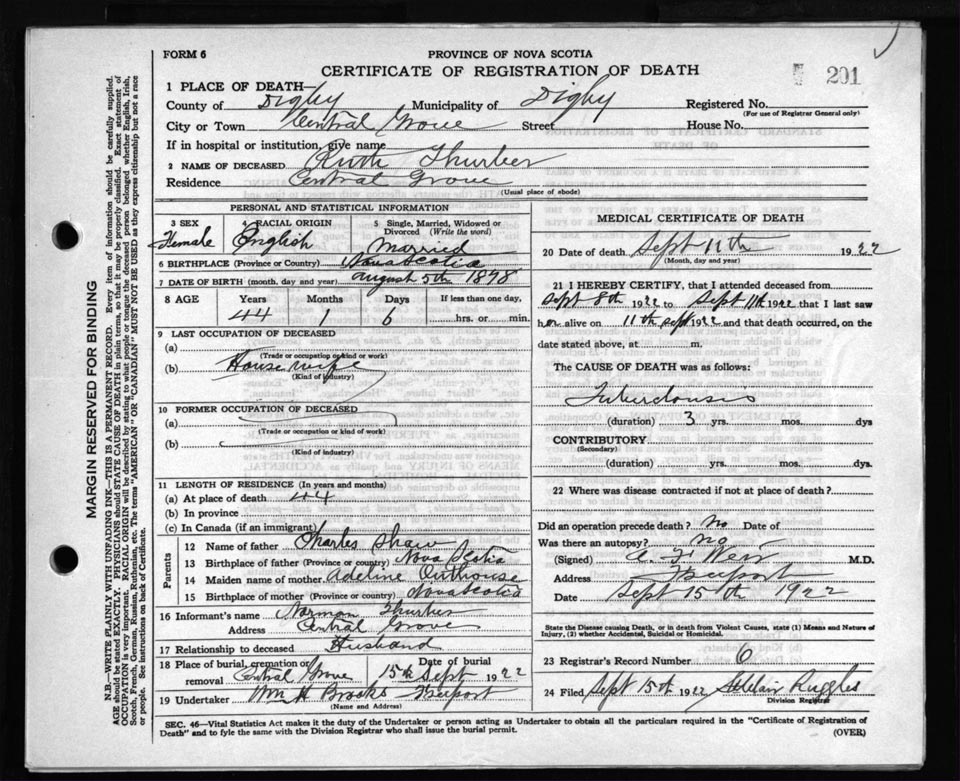 FORM 6
PROVINCE OF NOVA SCOTIA
CERTIFICATE OF REGISTRATION OF DEATH
201
1 PLACE OF DEATH—
County of Digby Municipality of Digby Registered No.
(For use of Registrar General only)
City or Town Central Grove Street House No.
If in hospital or institution, give name
2 NAME OF DECEASED Ruth Thurber
Residence Central Grove
(Usual place of abode)
PERSONAL AND STATISTICAL INFORMATION
3 SEX 4 RACIAL ORIGIN 5 Single, Married, Widowed or Divorced (Write the word)
Female English Married
6 BIRTHPLACE (Province or Country) Nova Scotia
7 DATE OF BIRTH (month, day and year) August 5th 1878
8 AGE Years Months Days If less than one day,
44 1 6 hrs. or min.
9 LAST OCCUPATION OF DECEASED
(a)
(Trade or occupation or kind of work)
(b) House wife
(Kind of industry)
10 FORMER OCCUPATION OF DECEASED
(a)
(Trade or occupation or kind of work)
(b)
(Kind of industry)
11 LENGTH OF RESIDENCE (In years and months)
(a) At place of death 44
(b) In province
(c) In Canada (if an immigrant)
Parents
12 Name of father Charles Shaw
13 Birthplace of father (Province or country) Nova Scotia
14 Maiden name of mother Adeline Outhouse
15 Birthplace of mother (Province or country) Nova Scotia
16 Informant's name Norman Thurber
Address Central Grove
17 Relationship to deceased Husband
18 Place of burial, cremation or removal Central Grove Date of burial 15th Sept 1922
19 Undertaker Wm H Brooks Freeport
(Name and Address)
MEDICAL CERTIFICATE OF DEATH
20 Date of death Sept 11th 1922
(Month, day and year)
21 I HEREBY CERTIFY, that I attended deceased from
Sept 8th 1922 to Sept 11th 1922 that I last saw
her alive on 11th Sept 1922 and that death occurred, on the
date stated above, at m.
The CAUSE OF DEATH was as follows:
Tuberculosis
(duration) 3 yrs. mos. dys
CONTRIBUTORY
(Secondary)
(duration) yrs. mos. dys.
22 Where was disease contracted if not at place of death?
Did an operation precede death? no Date of
Was there an autopsy? no
(Signed) Weir M.D.
Address Freeport
Date Sept 15th 1922
State the Disease causing Death, or in death from Violent Causes, state (1) Means and Nature of
Injury, (2) whether Accidental, Suicidal or Homicidal.
23 Registrar's Record Number 6
24 Filed Sept 15th 1922 Ruggles
Division Registrar
SEC. 46—Vital Statistics Act makes it the duty of the Undertaker or person acting as Undertaker to obtain all the particulars required in the "Certificate of Registration of
Death" and to fyle the same with the Division Registrar who shall issue the burial permit.
(OVER)
MARGIN RESERVED FOR BINDING
N.B.—WRITE PLAINLY WITH UNFADING INK—THIS IS A PERMANENT RECORD. Every item of information should be carefully supplied.
AGE should be stated EXACTLY. PHYSICIANS should STATE CAUSE OF DEATH in plain terms, so that it may be properly classified. Exact statement of
OCCUPATION is very important. RACIAL ORIGIN will be described by stating to what people or tongue the deceased person belonged whether English, Irish,
Scotch, French, German, Russian, Ruthenian, etc. The terms "AMERICAN" OR "CANADIAN" MUST NOT BE USED as they express citizenship but not a race
or people. See instructions on back of Certificate.